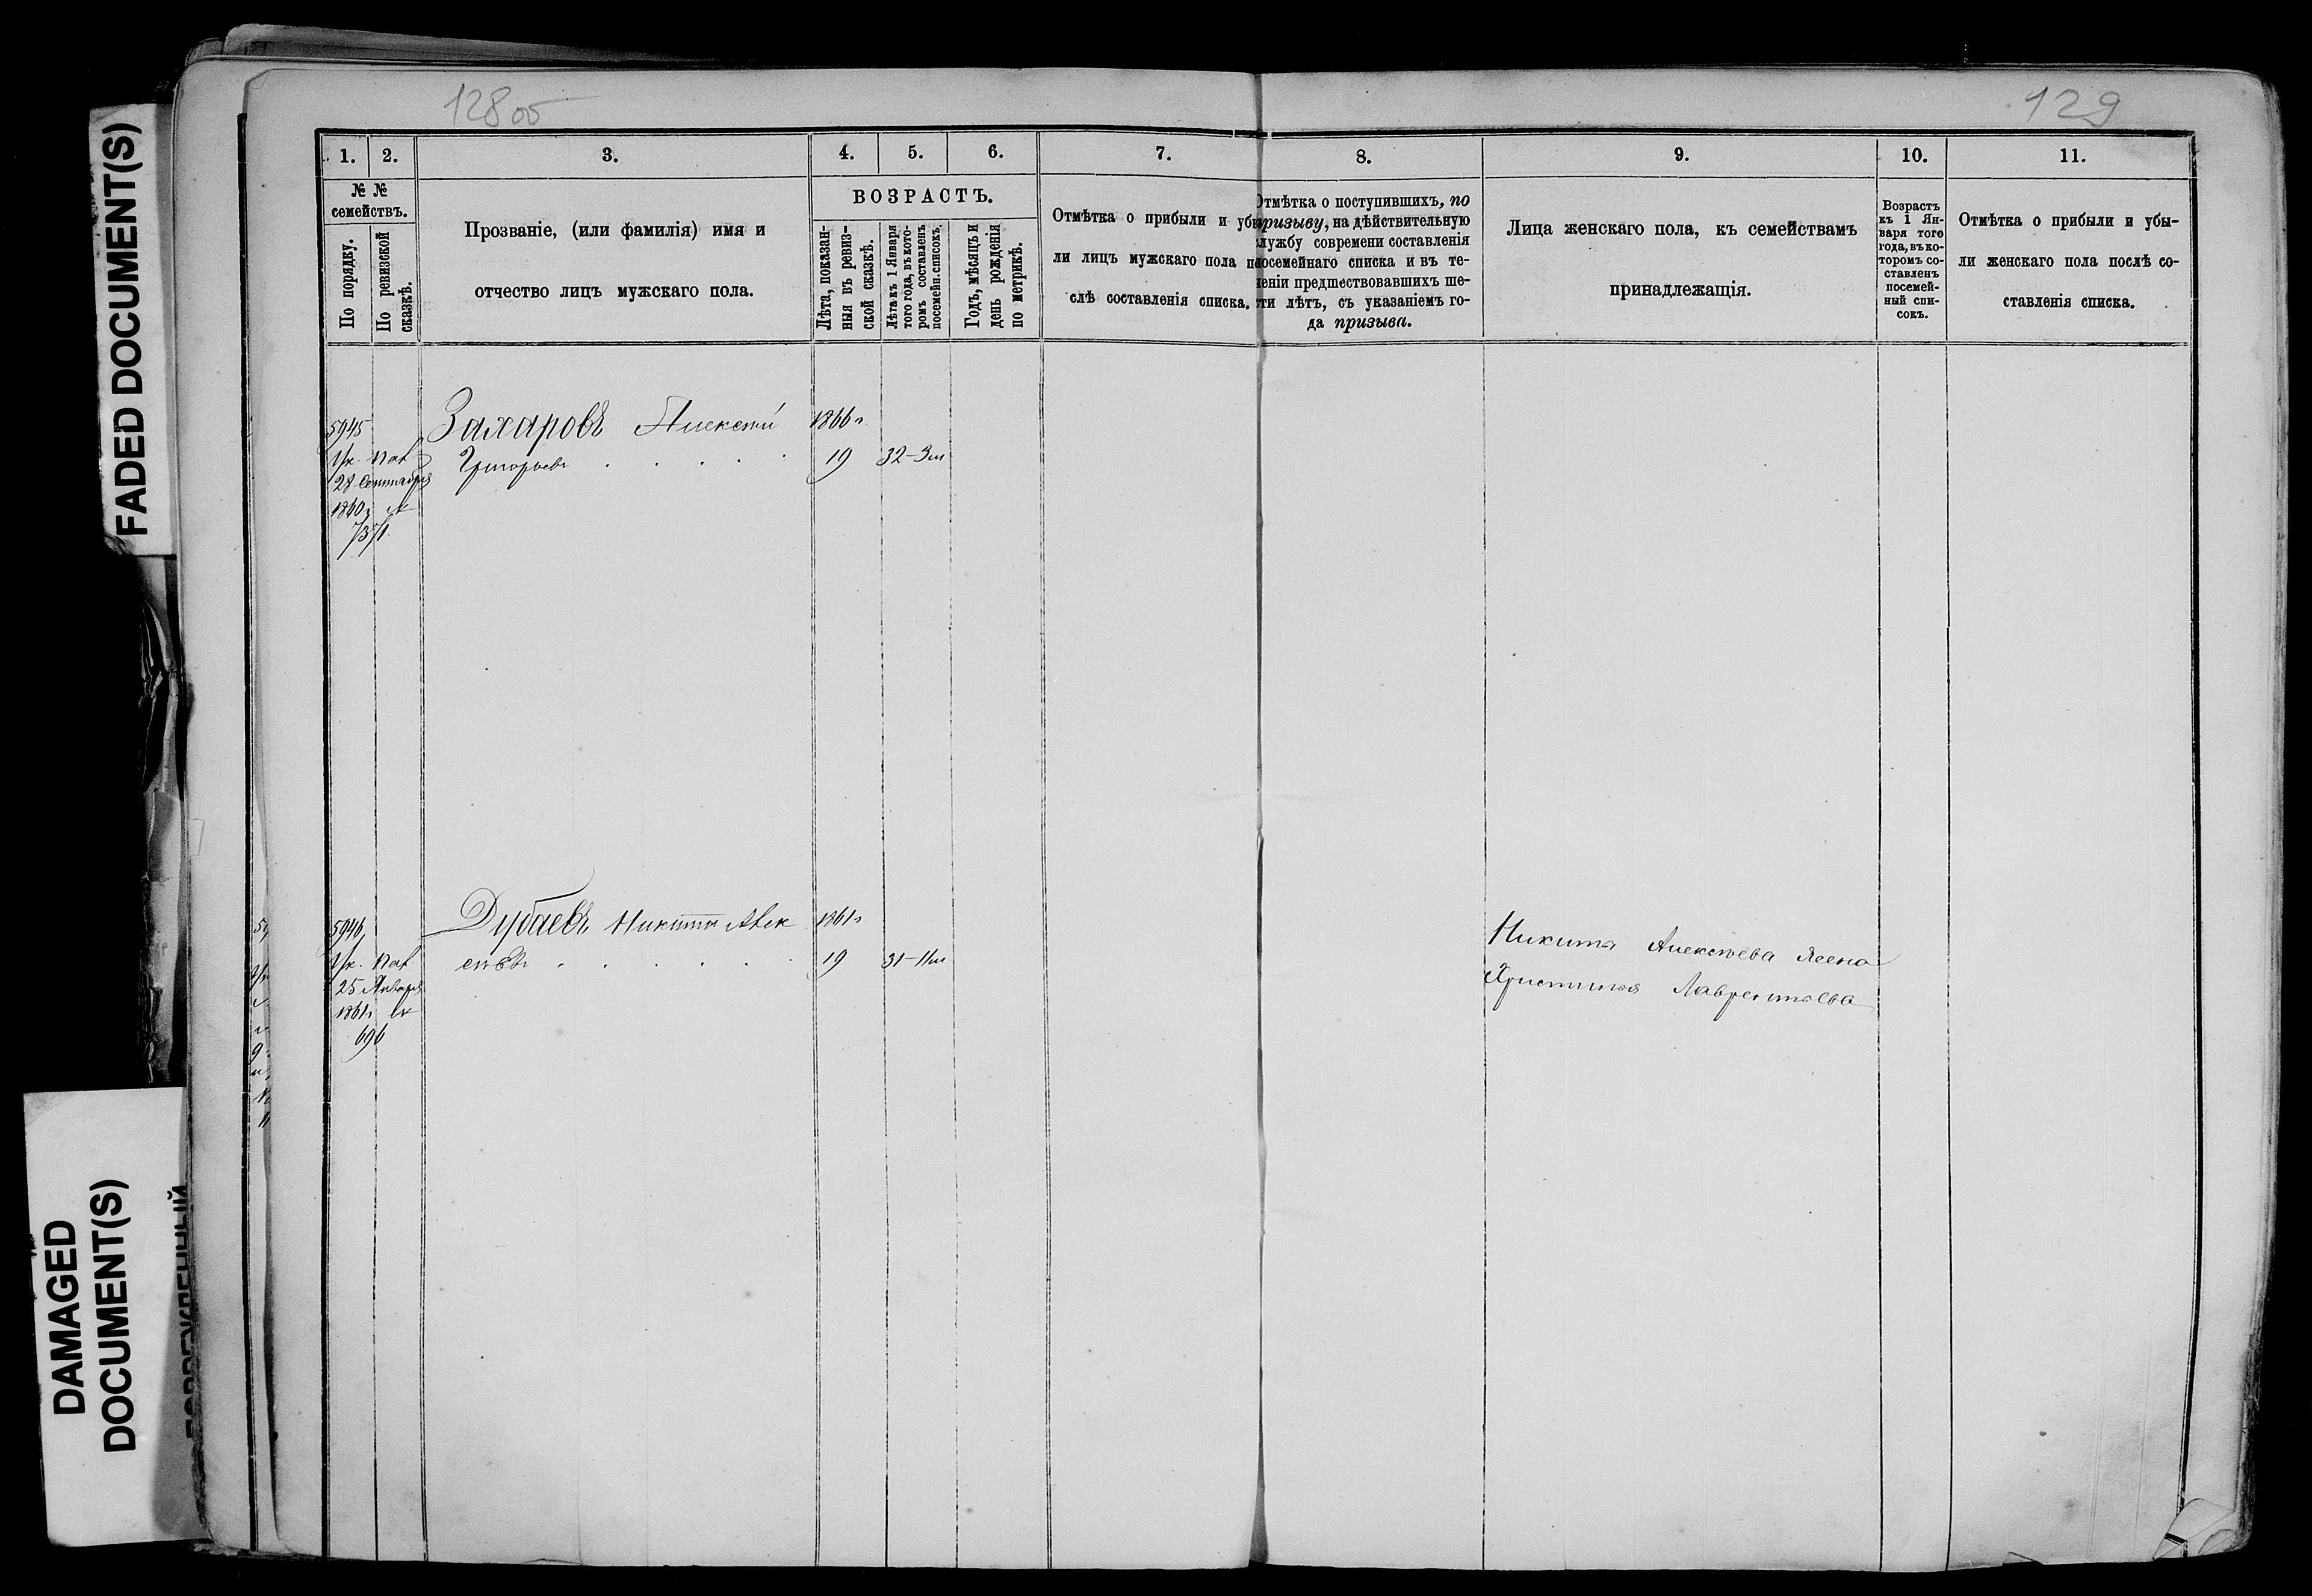 FADED DOCUMENT(S)
DAMAGED
DOCUMENT(S)
128об
129
1.
2.
3.
4.
5.
6.
7.
8.
9.
10.
11.
№ №
семействъ.
По порядку.
По ревизской
сказкѣ.
Прозваніе, (или фамилія) имя и
отчество лицъ мужскаго пола.
ВОЗРАСТЪ.
Лѣта, показан-
ныя въ ревиз-
ской сказкѣ.
Лѣта къ 1 Января
того года, въ кото-
ромъ составленъ
посемейн. списокъ.
Годъ, мѣсяцъ и
день рожденія
по метрикѣ.
Отмѣтка о прибыли и убы
ли лицъ мужскаго пола по
слѣ составленія списка.
Отмѣтка о поступившихъ, по
призыву, на дѣйствительную
службу современи составленія
посемейнаго списка и въ те-
ченіи предшествовавшихъ ше-
сти лѣтъ, съ указаніемъ го-
да призыва.
Лица женскаго пола, къ семействамъ
принадлежащія.
Возрастъ
къ 1 Ян-
варя того
года, въ ко-
торомъ со-
ставленъ
посемей-
ный спи-
сокъ.
Отмѣтка о прибыли и убы-
ли женскаго пола послѣ со-
ставленія списка.
5945
Захаровъ Алексѣй
Григорьевъ
28 Сентября
1860г
7371
19
32-3м
5946
Дубаевъ Никита Алек
сѣевъ
1861г
19
31-11м
25 Января
1861г
696
Никита Алексѣева жена
Христинья Лаврентьева